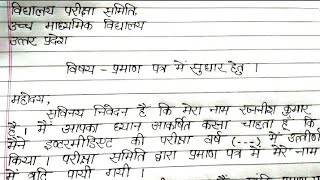 विद्यालय परीक्षा समिति,
उच्च माध्यमिक विद्यालय
उत्तर प्रदेश
विषय - प्रमाण पत्र में सुधार हेतु ।
महोदय,
सविनय निवेदन है कि मेरा नाम रजनीश कुमार
है । मैं आपका ध्यान आकर्षित करना चाहता हूं कि
मैंने इण्टरमीडिएट की परीक्षा वर्ष (---) में उत्तीर्ण
किया । परीक्षा समिति द्वारा प्रमाण पत्र में मेरे नाम
में त्रुटि पायी गयी ।